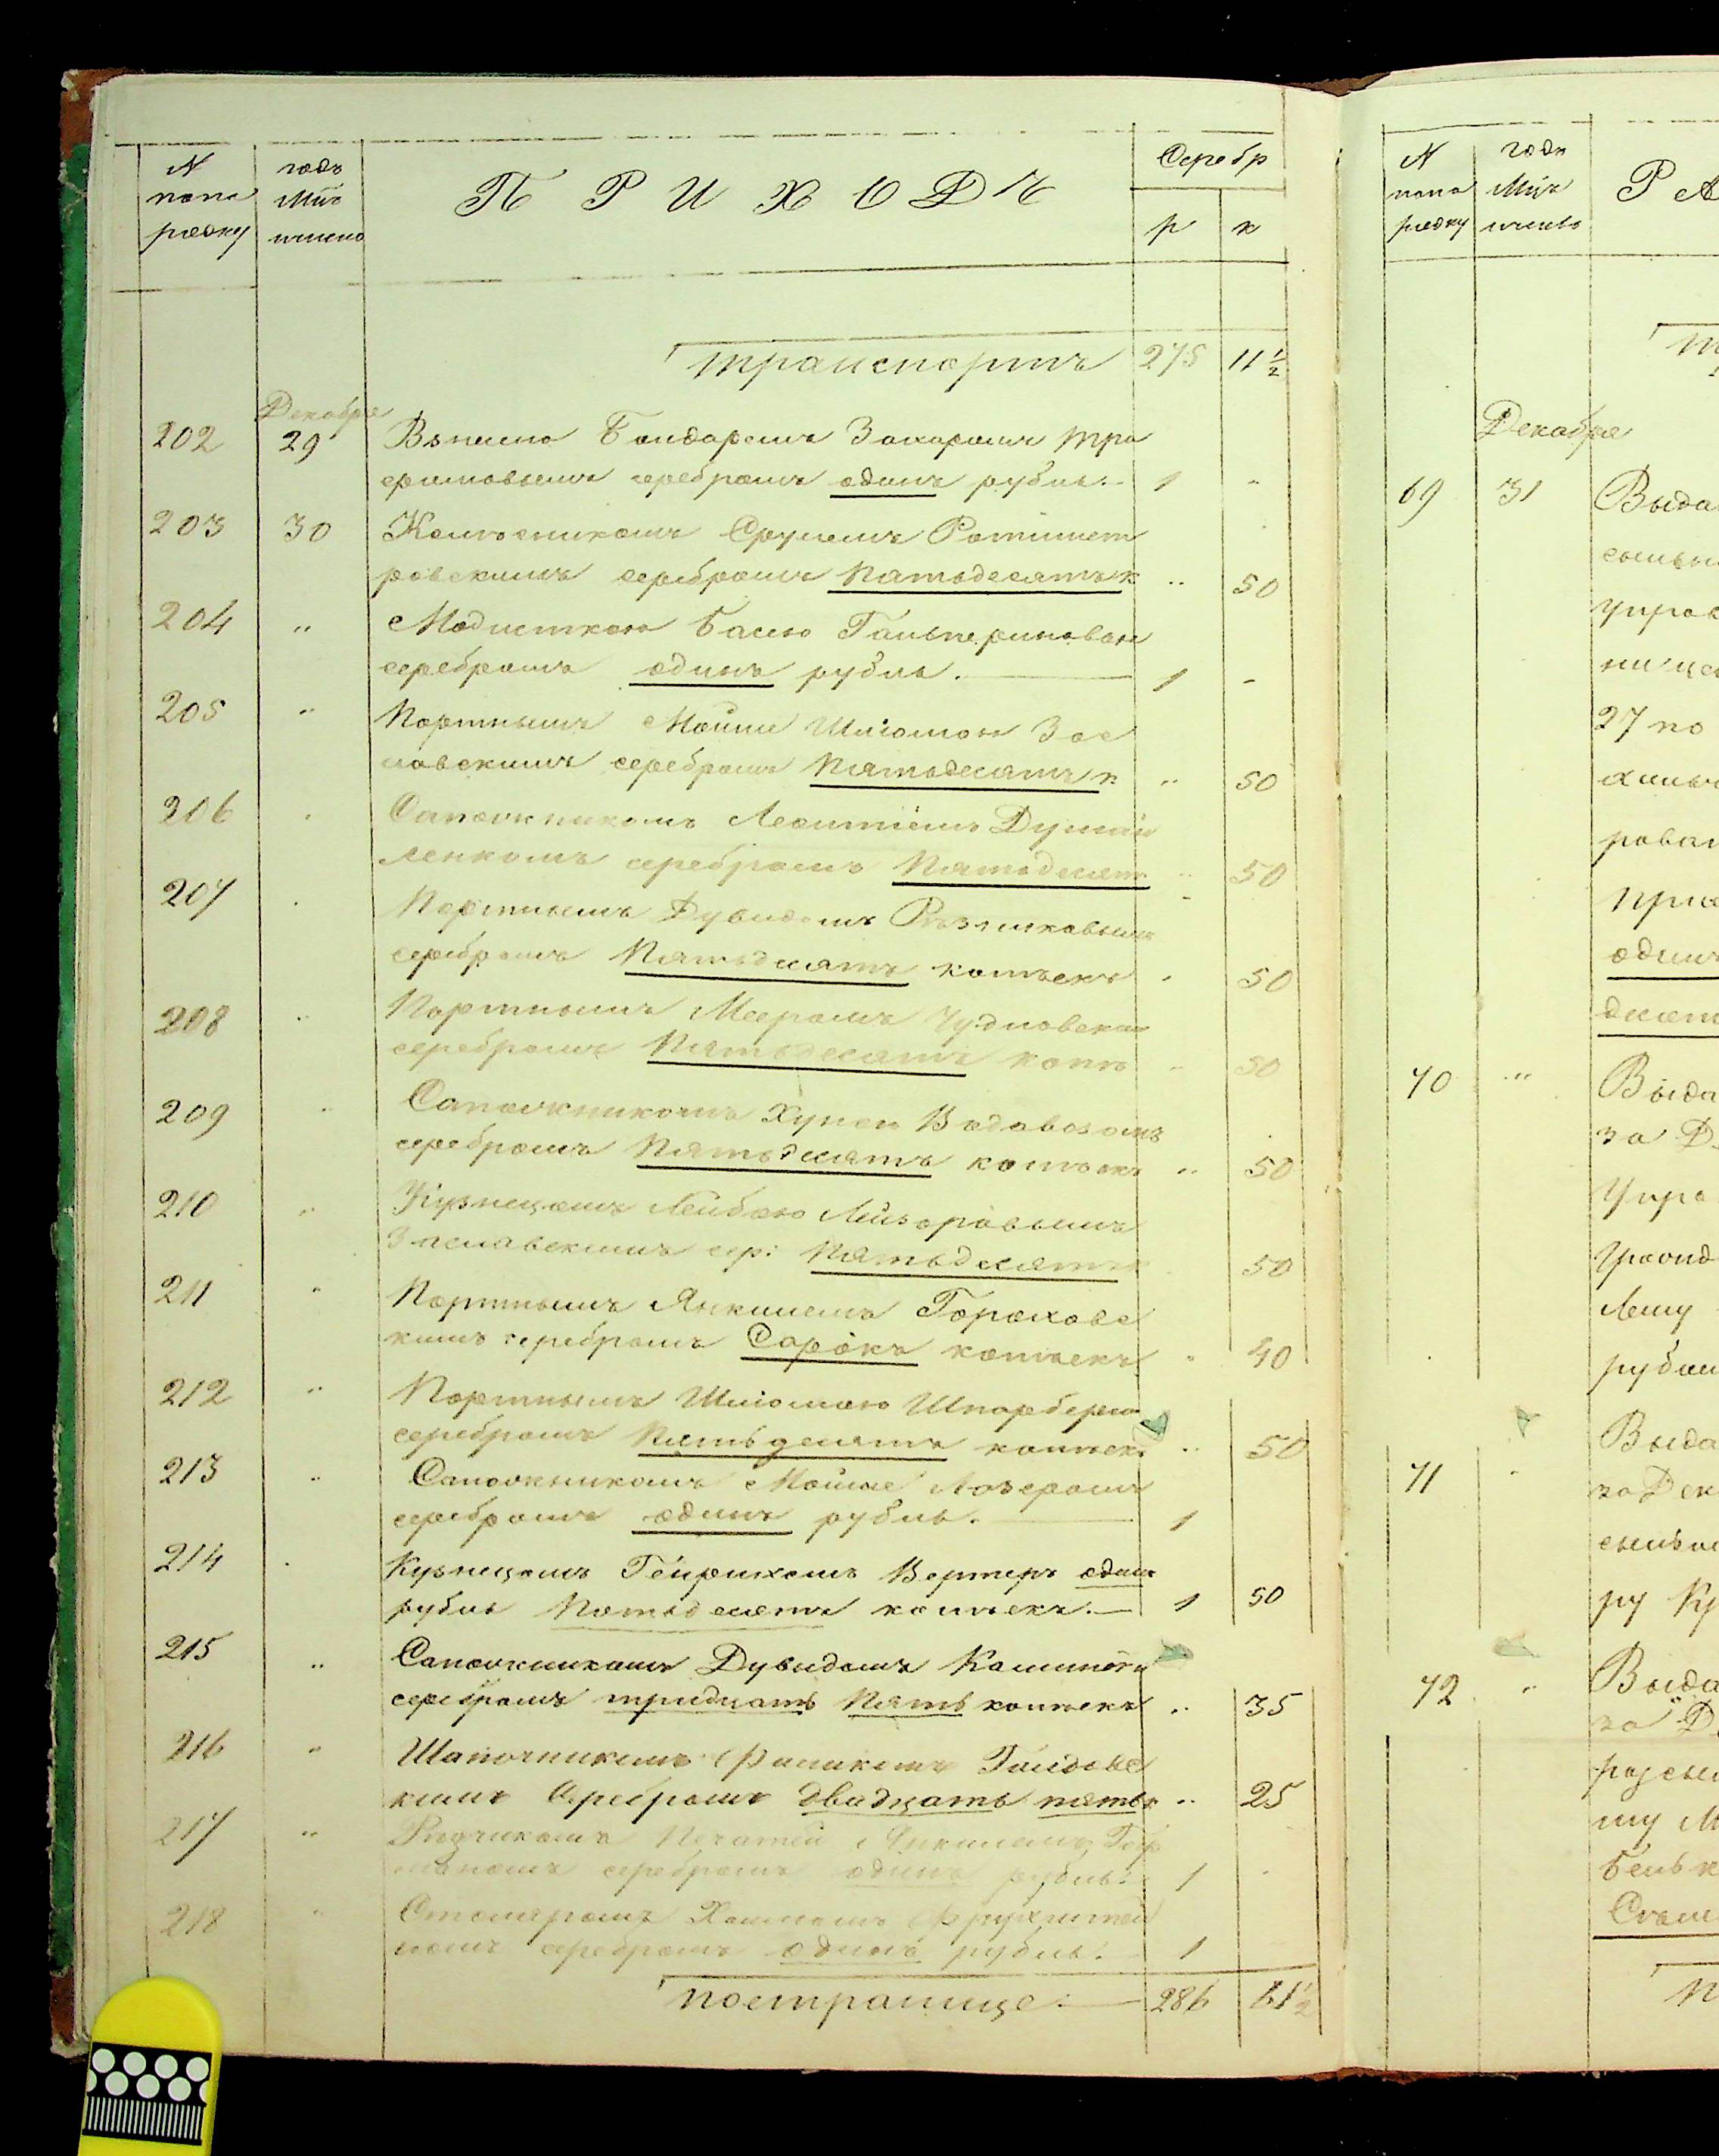 N
попо
рядку
годъ
Мцъ
и число
ПРИХОДЪ
Серебр
р
к
транспортъ 275 11 1/2
Декабря
202 29 Взнесено Бондаремъ Захаромъ Тра
серебромъ одинъ рубль. 1 "
203 30 Срулемъ Ротмист
ровскимъ серебромъ пятьдесятъ к " 50
204 " Модисткою Басею Гальпериновою
серебромъ одинъ рубль. 1 -
205 " Портнымъ Мошко Шліомою Зас
лавскимъ серебромъ пятьдесятъ к " 50
206 " Сапожникомъ Леонтіемъ
ленкомъ серебромъ пятьдесят " 50
207 " Портнымъ Дувидомъ Резниковымъ
серебромъ пятьдесятъ копѣекъ " 50
208 " Портнымъ Мееромъ Чудновским
серебромъ пятьдесятъ копѣ " 50
209 " Сапожникомъ Хуном Водовозомъ
серебромъ пятьдесятъ копѣекъ " 50
210 " Кузнецомъ Лейбою Лейзоровымъ
Заславскимъ сер: пятьдесятъ к 50
211 " Портнымъ Янкилемъ Гороховс
кимъ серебромъ сорокъ копѣекъ " 40
212 " Портнымъ Шліомою Шпарберго
серебромъ пятьдесятъ копѣек. " 50
213 " Сапожникомъ Мошкою Лозеромъ
серебромъ одинъ рубль. 1
214 " Кузнецомъ Гейрихомъ Вертеръ один
рубль пятьдесятъ копѣекъ. 1 50
215 " Сапожникомъ Дувидомъ
серебромъ тридцать пять копѣекъ " 35
216 " Шапочникомъ Фаликомъ
кимъ серебромъ двадцать пять к " 25
217 " Рѣзчикомъ печатей Янкилемъ
маномъ серебромъ одинъ рубль. 1 "
218 " Столяромъ Хаимомъ Фрухштей
номъ серебромъ одинъ рубль. 1
по странице 286 61 1/2
N
попо
рядку
годъ
Мцъ
и число
РА
Декабря
69 31 Выда
управ
27 по
рован
при
одинъ
десят
70 " Выда
за Д
Упра
рубл
71 " Выда
за Дек
ру Кр
72 " Выда
за Д
му М